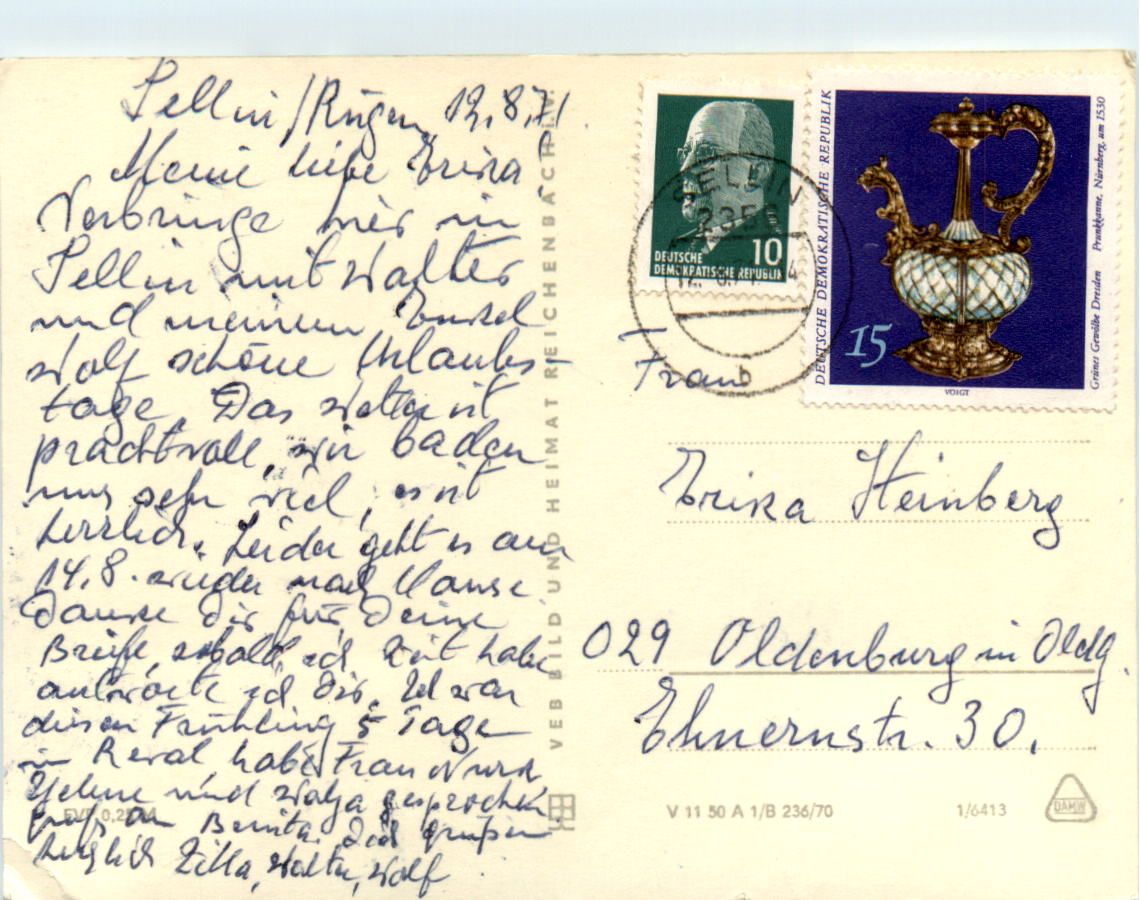 Sellin/Rügen, 12.8.71.
Meine liebe Erika
Verbringe hier in
Sellin mit Walter
und meinem Enkel
Wolf schöne Urlaubs-
tage. Das Wetter ist
prachtvoll, wir baden
uns sehr viel, es ist
herrlich. Leider geht es am
14.8. wieder nach Hause
Danke Dir für Deine
Briefe, sobald ich Zeit habe
antworte ich Dir. Ich war
diesen Frühling 5 Tage
in Reval, habe Frau
und Walja gesprochen.
Gruß an Benita. Dich grüßen
herzlich Zilla, Walter, Wolf
EVP 0,2
VEB BILD UND HEIMAT REICHENBACH i. V.
DEUTSCHE
DEMOKRATISCHE REPUBLIK
10
SELLIN
2356
b
DEUTSCHE DEMOKRATISCHE REPUBLIK
15
VOIGT
Grünes Gewölbe Dresden Prunkkanne, Nürnberg, um 1530
Frau
Erika Heinberg
029 Oldenburg in Oldg.
Ehnernstr. 30.
V 11 50 A 1/B 236/70
1/6413
DAMW